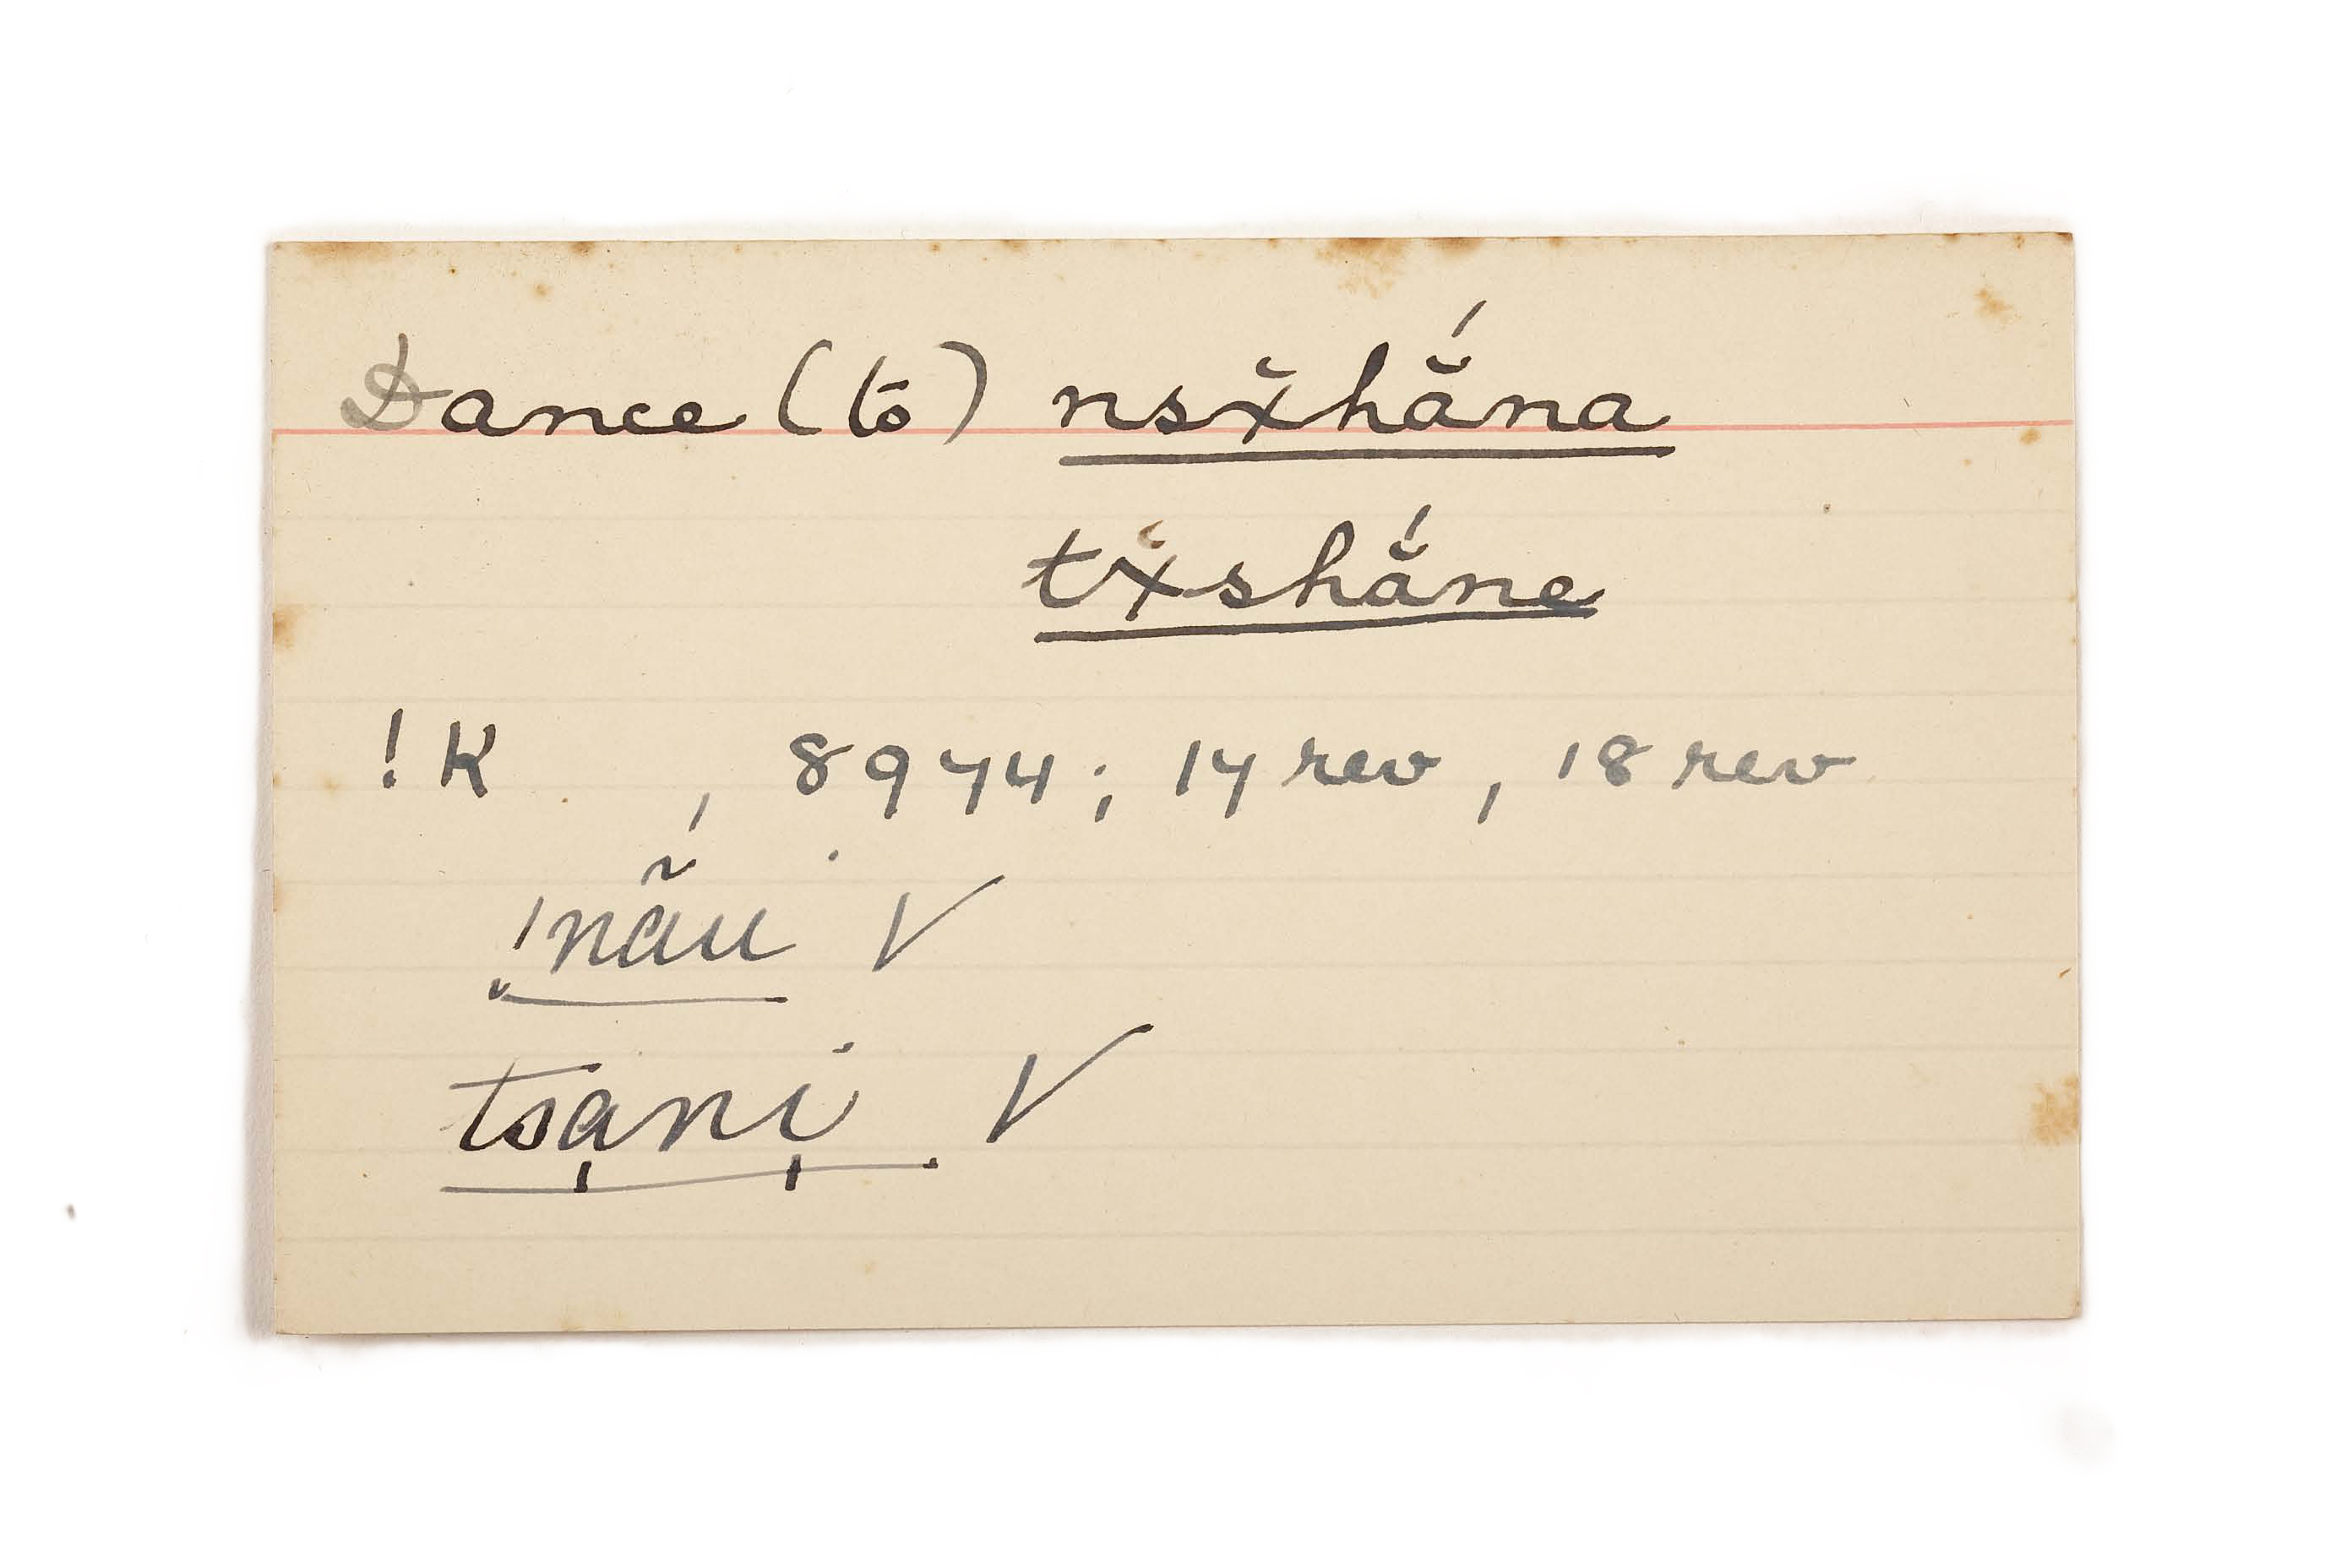 Dance (to) nsx̆hắna
tx̆shắne
!K , 8974; 14 rev, 18 rev
!nã́u √
tsa̩ni̩ √